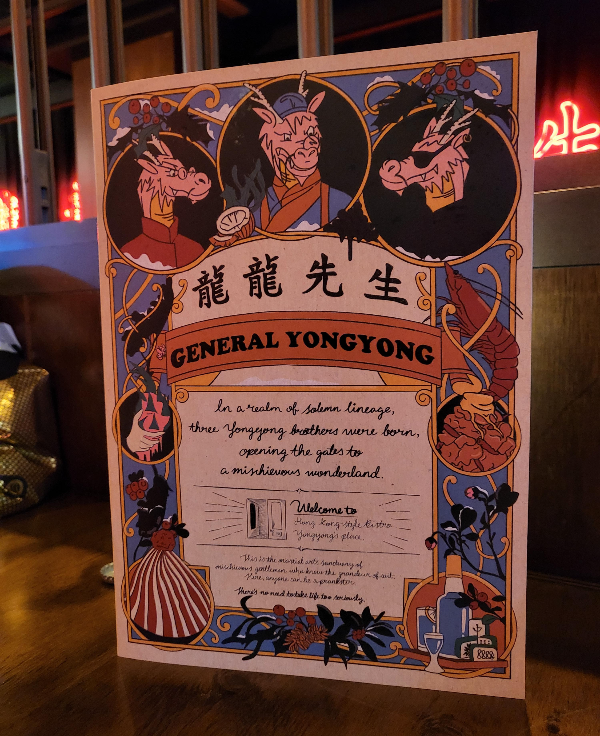 龍龍先生
GENERAL YONGYONG
In a realm of solemn lineage,
three Yongyong brothers were born,
opening the gates to
a mischievous wonderland.
Welcome to
Hong Kong-style Bistro
Yongyong's place.
This is the martial arts sanctuary of
mischievous gentlemen who know the grandeur of art.
Here, anyone can be a prankster.
There's no need to take life too seriously.